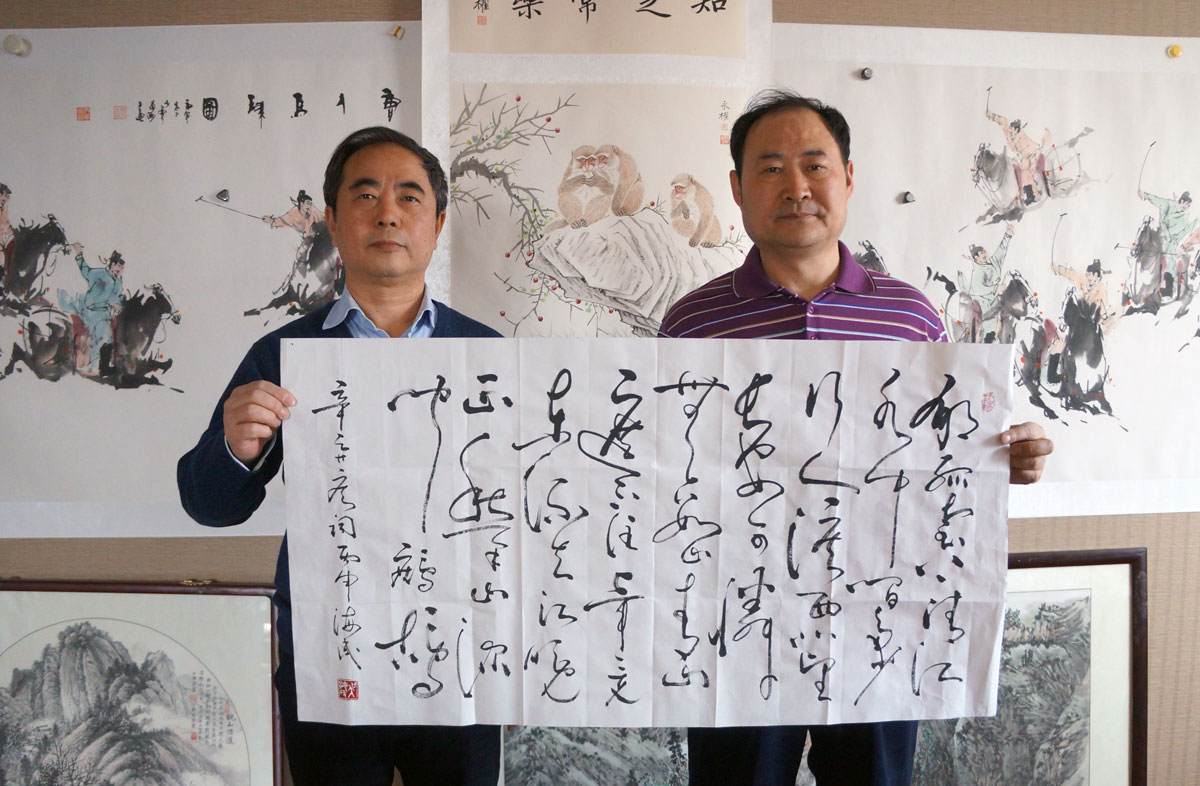 知足常樂
唐人馬球圖
郁孤台下清江
水中间多少
行人泪西北望
长安可怜
無数山青山
遮不住毕竟
东流去江晚
正愁余山深
闻鹧鸪
辛弃疾词丙申海民